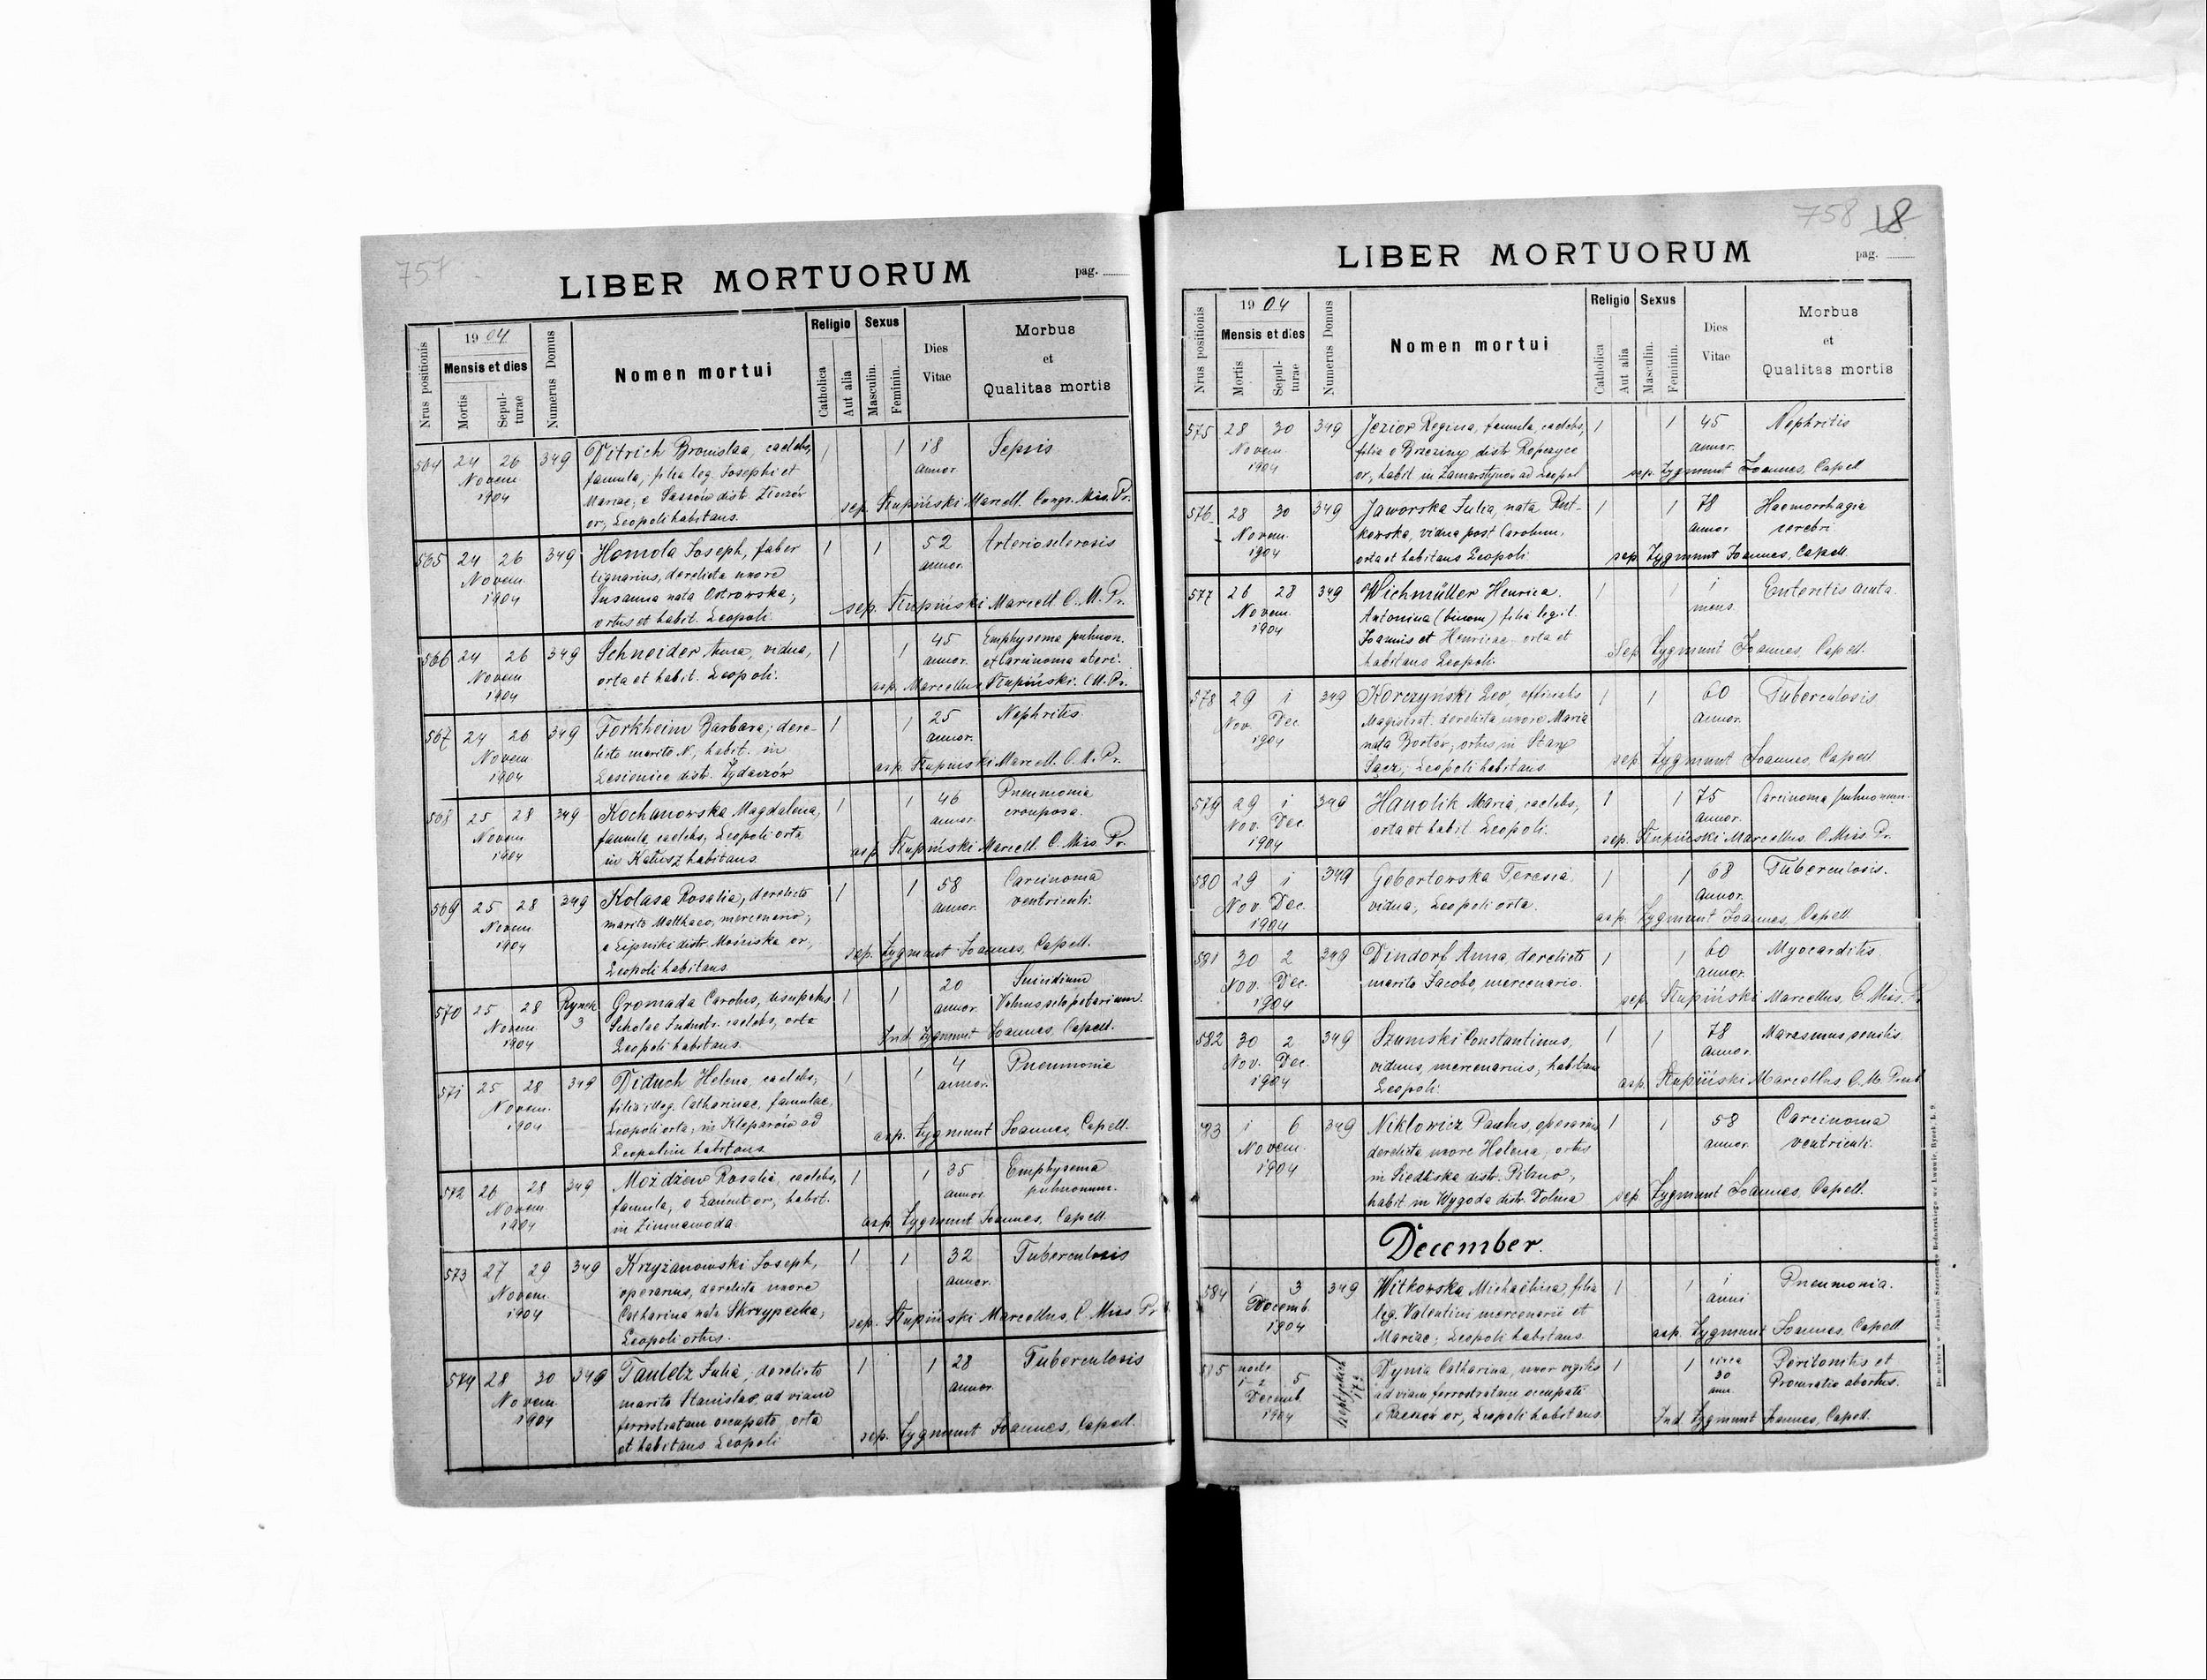 757
LIBER MORTUORUM
pag.
Nrus positionis
1904
Mensis et dies
Mortis
Sepul-
turae
Numerus Domus
Nomen mortui
Religio
Catholica
Aut alia
Sexus
Masculin.
Feminin.
Dies
Vitae
Morbus
et
Qualitas mortis
564 24 26 349 Ditrich Bronislaa, caelebs, 1 1 18 Sepsis
Novem. famula, filia leg. Josephi et annor.
1904 Mariae, e Sassów distr. Złoczów sep. Słupiński Marcell. Congr. Mis. Pr.
or., Leopoli habitans.
565 24 26 349 Homola Joseph, faber 1 1 52 Arteriosclerosis
Novem. lignarius, derelicta uxore annor.
1904 Susanna nata Ostrowska; sep. Słupiński Marcell C. M. Pr.
ortus et habit. Leopoli.
566 24 26 349 Schneider Anna, vidua, 1 1 45 Emphysema pulmon.
Novem orta et habit. Leopoli. annor. et Carcinoma uteri.
1904 asp. Marcellus Słupiński. C. M. Pr.
567 24 26 349 Forkheim Barbara; dere- 1 1 25 Nephritis
Novem licta marito N, habit. in annor.
1904 Lesienice distr. Żydaczów asp. Słupinski Marcell. C. M. Pr.
568 25 28 349 Kochanowska Magdalena, 1 1 46 Pneumonia
Novem famula, caelebs, Leopoli orta annor. crouposa.
1904 in Kałusz habitans asp. Słupiński Marcell. C. Mis. Pr.
569 25 28 349 Kolasa Rosalia, derelicta 1 1 58 Carcinoma
Novem. marito Matthaeo, mercenario; annor. ventriculi.
1904 e Lipniki distr. Mościska or., sep. Zygmunt Joannes, Capell.
Leopoli habitans
570 25 28 Rynek 3 Gromada Carolus, 1 1 20 Suicidium
Novem. Scholae Industr. caelebs, orta annor. Vulnus sclopetarium.
1904 Leopoli habitans. Ind. Zygmunt Joannes, Capell.
571 25 28 349 Diduch Helena, caelebs, 1 1 4 Pneumonia
Novem. filia illeg. Catharinae, famulae, annor.
1904 Leopoli orta, in Kleparów ad asp. Zygmunt Joannes, Capell.
Leopolim habitans
572 26 28 349 Możdżew Rosalia, caelebs, 1 1 35 Emphysema
Novem. famula, e Łańcut or., habit. annor. pulmonum.
1904 in Zimnawoda asp. Zygmunt Joannes, Capell.
573 27 29 349 Krzyżanowski Joseph, 1 1 32 Tuberculosis
Novem. operarius, derelicta uxore annor.
1904 Catharina nata Skrzypecka, sep. Słupiński Marcellus, C. Miss. Pr.
Leopoli ortus.
574 28 30 349 Tauletz Julia, derelicta 1 1 28 Tuberculosis
Novem. marito Stanislao, ad viam annor.
1904 ferrostratam occupato, orta sep. Zygmunt Joannes, Capell.
et habitans Leopoli
758 18
LIBER MORTUORUM
pag.
Nrus positionis
1904
Mensis et dies
Mortis
Sepul-
turae
Numerus Domus
Nomen mortui
Religio
Catholica
Aut alia
Sexus
Masculin.
Feminin.
Dies
Vitae
Morbus
et
Qualitas mortis
575 28 30 349 Jezior Regina, famula, caelebs, 1 1 45 Nephritis
Novem filia e Brzeziny distr. Ropczyce annor.
1904 or., habit in Zamarstynów ad Leopol sep. Zygmunt Joannes, Capell
576 28 30 349 Jaworska Julia, nata Rut- 1 1 78 Haemorrhagia
Novem. kowska, vidua post Carolum, annor cerebri.
1904 orta et habitans Leopoli sep. Zygmunt Joannes, Capell.
577 26 28 349 Wichmüller Henrica 1 1 1 Enteritis acuta.
Novem. Antonina (binom) filia legit. mens.
1904 Joannis et Henricae orta et
habitans Leopoli. Sep. Zygmunt Joannes, Capell.
578 29 1 349 Korczyński Leo, officialis 1 1 60 Tuberculosis
Nov. Dec. Magistrat. derelicta uxore Maria annor.
1904 nata ortus in Stary sep. Zygmunt Joannes, Capell
Sącz; Leopoli habitans.
579 29 1 349 Hanolik Maria, caelebs, 1 1 75 Carcinoma pulmonum.
Nov. Dec. orta et habit. Leopoli. annor.
1904 sep. Słupiński Marcellus. C. Miss. Pr.
580 29 1 349 Gebertowska Teresia 1 1 68 Tuberculosis.
Nov. Dec. vidua, Leopoli orta. annor.
1904 asp. Zygmunt Joannes, Capell.
581 30 2 349 Dindorf Anna, derelicta 1 1 60 Myocarditis.
Nov. Dec. marito Jacobo, mercenario. annor.
1904 sep. Słupiński Marcellus, C. Miss. Pr.
582 30 2 349 Szumski Constantinus, 1 1 78 Marasmus senilis.
Nov. Dec. viduus, mercenarius, habitans annor.
1904 Leopoli. asp. Słupiński Marcellus C. M. Presb.
583 1 6 349 Niklowicz Paulus, operarius 1 1 58 Carcinoma
Novem. derelicta uxore Helena, ortus annor. ventriculi.
1904 in Siedliska distr. Pilzno,
habit in Wygoda distr. Dolina sep. Zygmunt Joannes, Capell.
December.
584 1 3 349 Witkowska Michaëlina, filia 1 1 1 Pneumonia.
Decemb. leg. Valentini mercenarii et anni
1904 Mariae; Leopoli habitans. asp. Zygmunt Joannes, Capell
585 nocte 1-2 5 Szeptyckich Dynia Catharina, uxor vigilis 1 1 circa Peritonitis et
Decemb. ad viam ferrostratam occupati 30 Procuratio abortus.
1904 e Rzeszów or., Leopoli habitans. ann. Ind. Zygmunt Joannes, Capell.